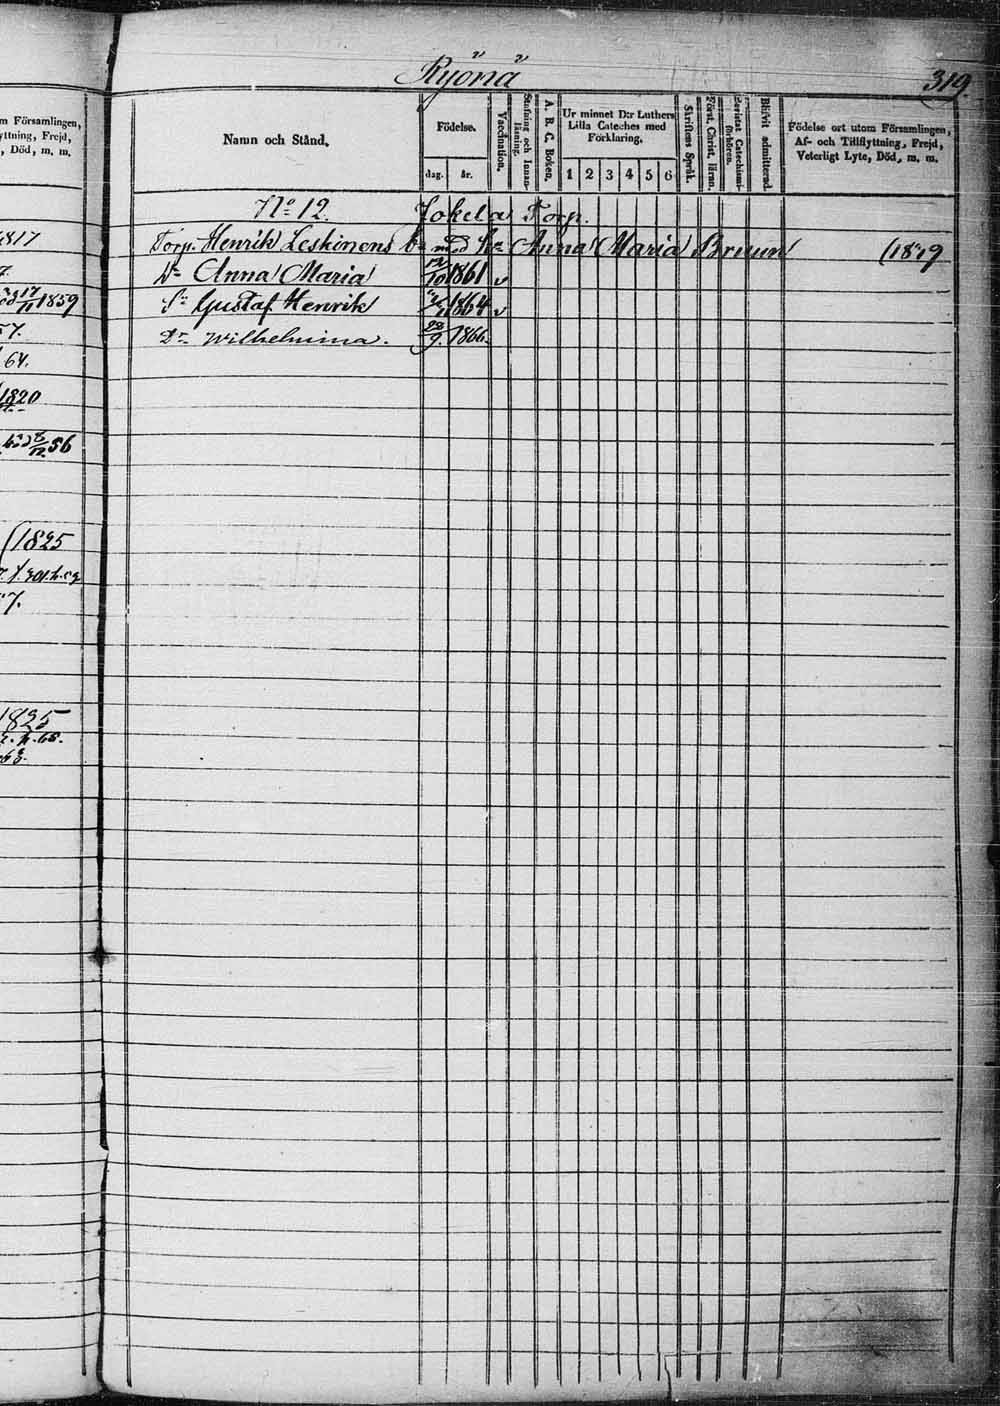 Ryönä
319.
m Församlingen,
yttning, Frejd,
, Död, m. m.
1817
17/11 1859
57.
64.
1820
56
(1825
57.
1825
63.
Namn och Stånd,
Födelse.
dag. år.
Vaccination.
Stafning och Innan-
läsning.
A. B. C. Boken.
Ur minnet D:r Luthers
Lilla Cateches med
Förklaring.
1 2 3 4 5 6
Skriftens Språk.
Först. Christ. läran.
förhören.
Blifvit admitterad
Födelse ort utom Församlingen,
Af- och Tillflyttning, Frejd,
Veterligt Lyte, Död, m. m.
No 12. Jokela Torp.
Torp. Henrik Leskinens b:n med h:u Anna Maria Bruun (1819
Dr Anna Maria 1861 v
Sn Gustaf Henrik 1864 v
Dr Wilhelmina. 28/9. 1866.